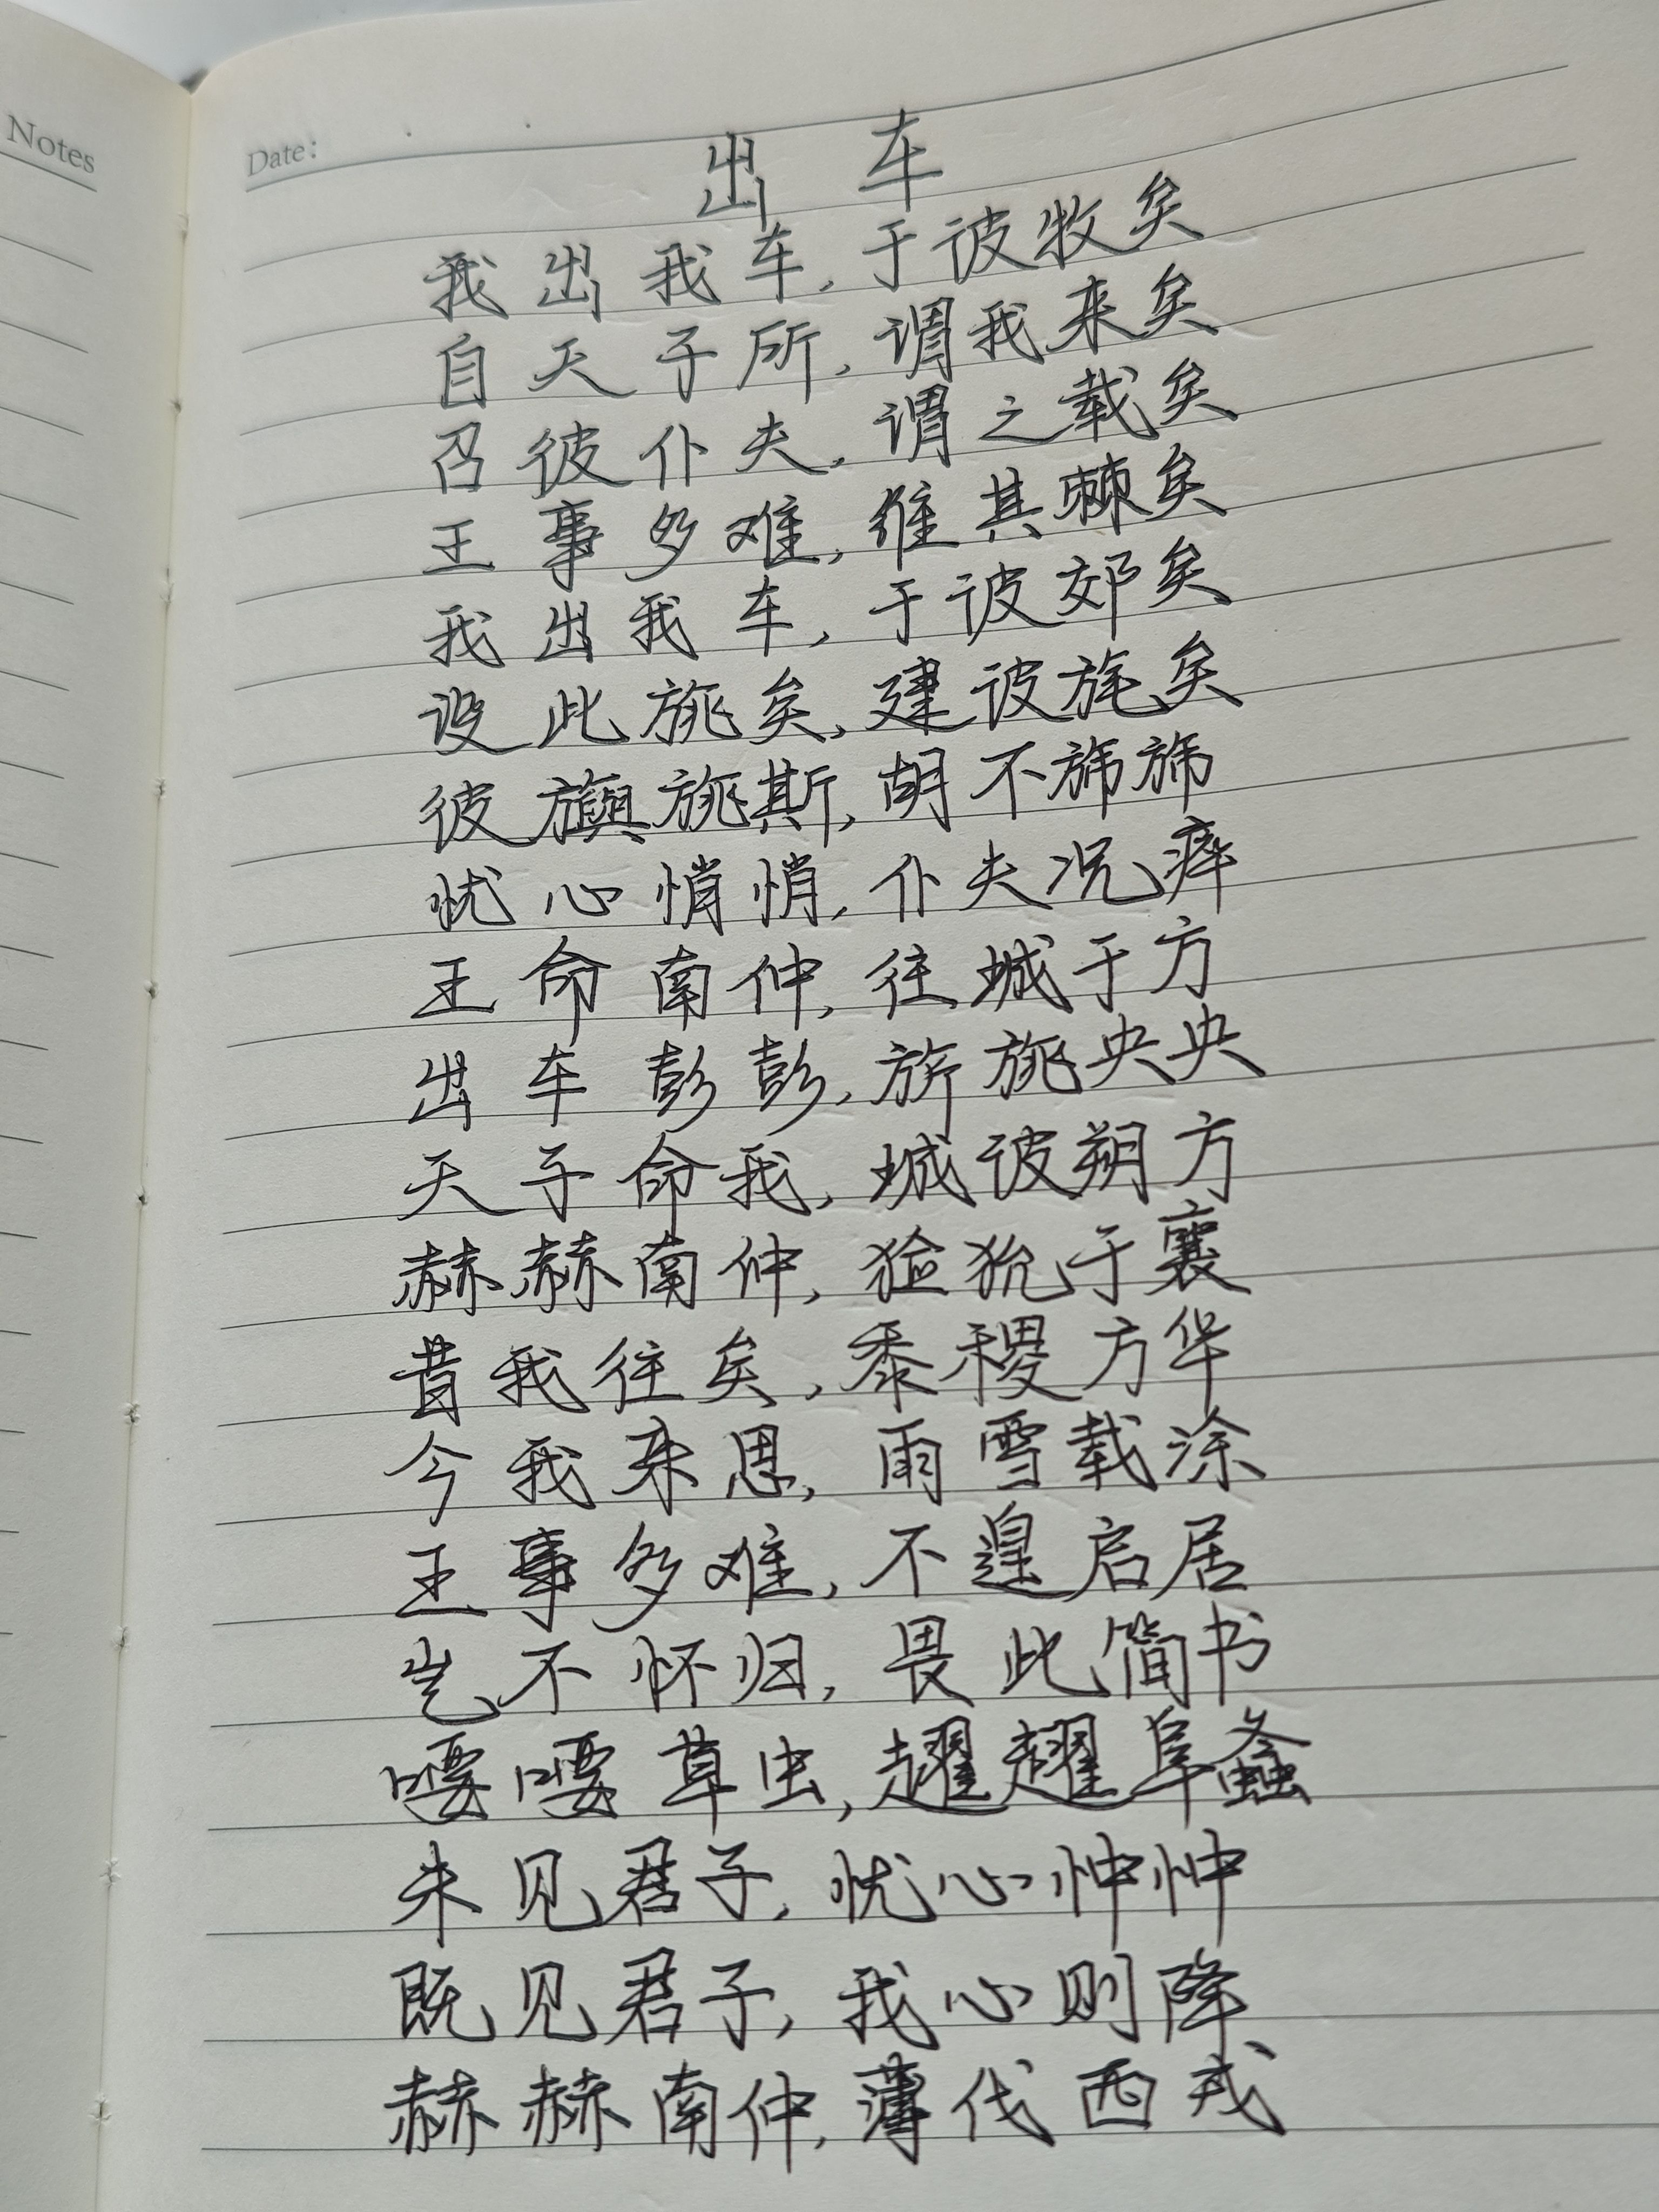 Notes
Date:
出车
我出我车,于彼牧矣
自天子所,谓我来矣
召彼仆夫,谓之载矣
王事多难,维其棘矣
我出我车,于彼郊矣
设此旐矣,建彼旄矣
彼旟旐斯,胡不旆旆
忧心悄悄,仆夫况瘁
王命南仲,往城于方
出车彭彭,旂旐央央
天子命我,城彼朔方
赫赫南仲,猃狁于襄
昔我往矣,黍稷方华
今我来思,雨雪载涂
王事多难,不遑启居
岂不怀归,畏此简书
喓喓草虫,趯趯阜螽
未见君子,忧心忡忡
既见君子,我心则降
赫赫南仲,薄伐西戎